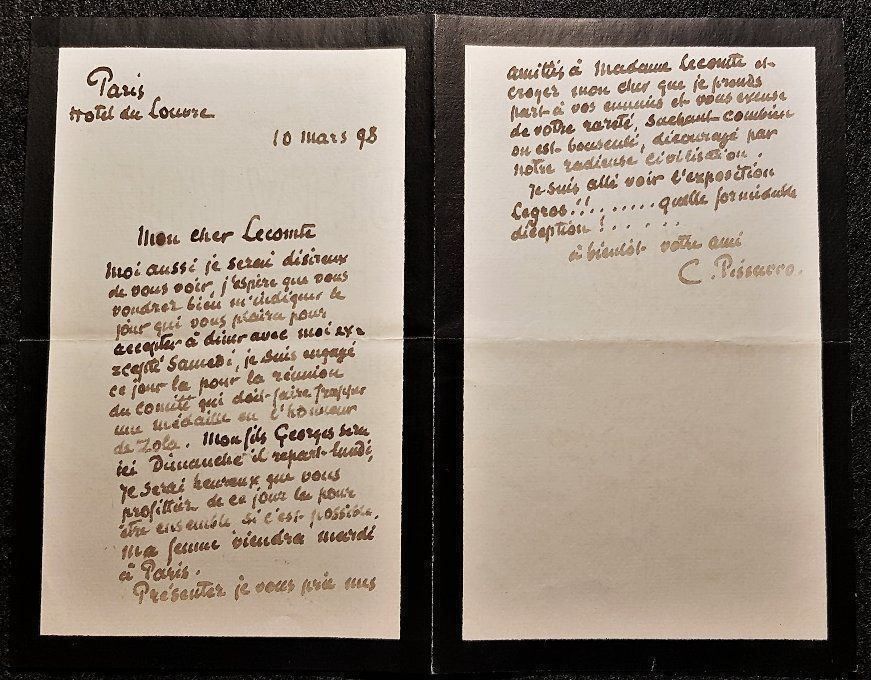 Paris
Hotel du Louvre
10 mars 98
Mon cher Lecomte
Moi aussi je serai désireux
de vous voir, j'espère que vous
voudrez bien m'indiquer le
jour qui vous plaira pour
accepter à diner avec moi ex=
=cepté Samedi, je suis engagé
ce jour la pour la réunion
du comité qui doit faire frapper
une médaille en l'honneur
de Zola. Mon fils Georges sera
ici Dimanche il repart lundi,
je serai heureux que vous
profittiez de ce jour la pour
être ensemble si c'est possible.
ma femme viendra mardi
à Paris.
Présenter je vous prie mes
amitiés à Madame Lecomte et
croyez mon cher que je prends
part à vos ennuies et vous excuse
de votre rareté, sachant combien
on est bousculé, découragé par
notre radieuse civilisation.
Je suis allé voir l'exposition
Legros!!....... quelle formidable
déception!......
à bientôt votre ami
C. Pissarro.